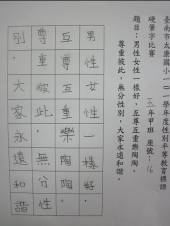 臺南市太康國小一○一學年度性別平等教育標語
硬筆字比賽
五年甲班 座號：16
題目：男性女性一樣好，互尊互重樂陶陶，
尊重彼此，無分性別，大家永遠和諧。
男性女性一樣好，
互尊互重樂陶陶，
尊重彼此，無分性
別，大家永遠和諧